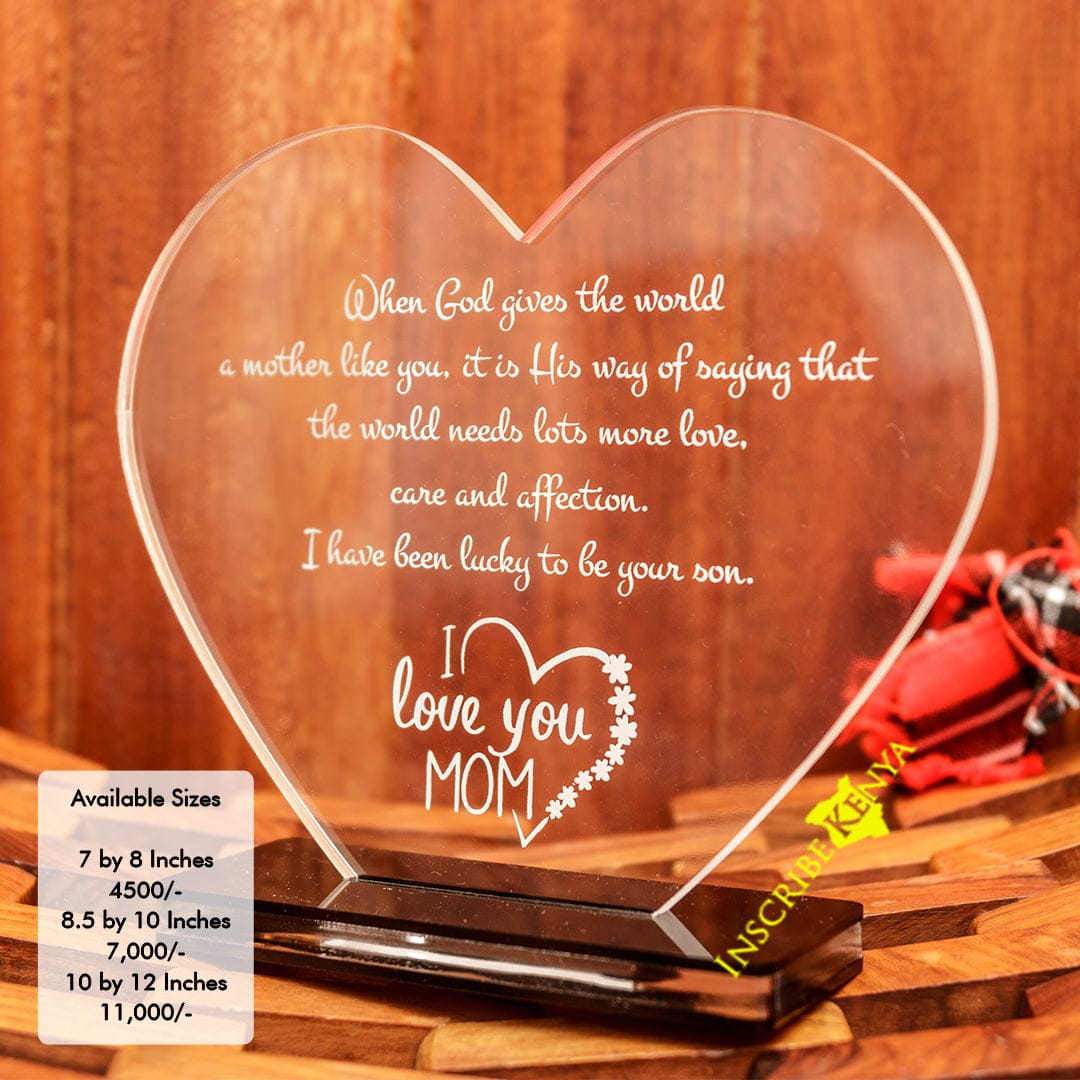 When God gives the world
a mother like you, it is His way of saying that
the world needs lots more love,
care and affection.
I have been lucky to be your son.
I
love you
MOM
Available Sizes
7 by 8 Inches
4500/-
8.5 by 10 Inches
7,000/-
10 by 12 Inches
11,000/-
INSCRIBE KENYA